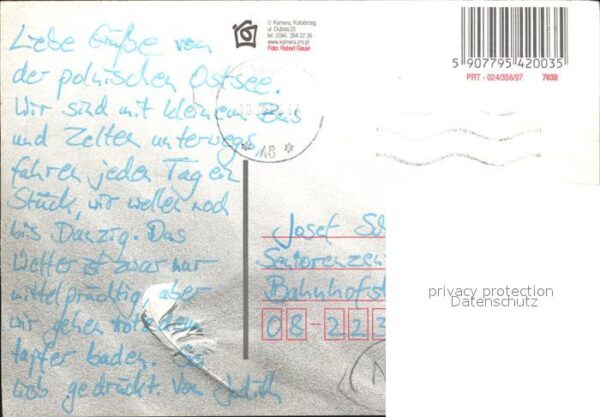 Liebe Grüße von
der polnischen Ostsee.
Wir sind mit kleinem Bus
und Zelten unterwegs,
fahren jeden Tag en
Stück, wir wollen noch
bis Danzig. Das
Wetter ist zwar nur
mittelprächtig, aber
wir gehen trotzdem
tapfer baden. Sei
lieb gedrückt. Von Judith
© Kamera, Kołobrzeg
ul. Dubois 23
tel. (094) 354 22 36
www.kamera.cni.pl
Foto: Robert Gauer
5 907795 420035
PRT - 024/356/97 7639
Josef
Seniorenzen
Bahnhofst
08-223
privacy protection
Datenschutz